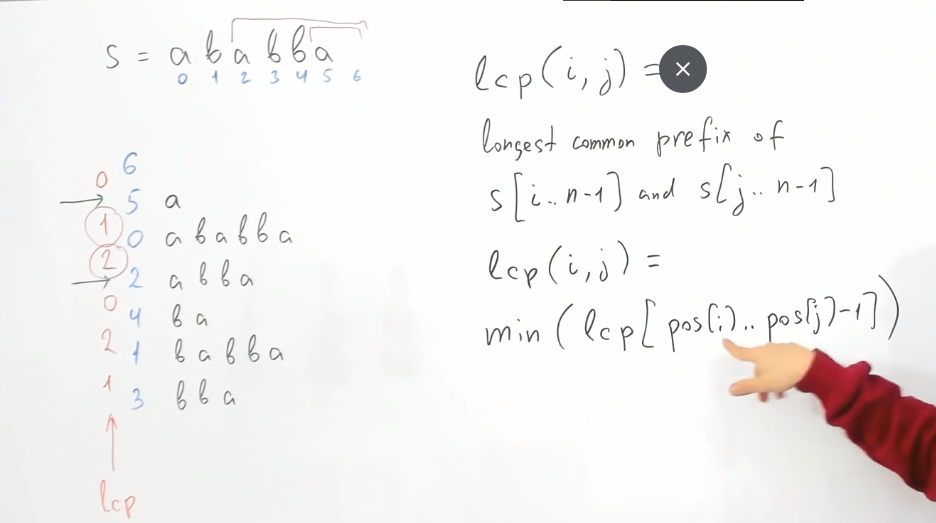 s = a b a b b a
0 1 2 3 4 5 6
0 6
5 a
1
0 a b a b b a
2
2 a b b a
0
4 b a
2
1 b a b b a
1
3 b b a
lcp
lcp(i, j) =
longest common prefix of
s[i.. n-1] and s[j.. n-1]
lcp(i,j) =
min ( lcp[ pos(i).. pos(j)-1] )